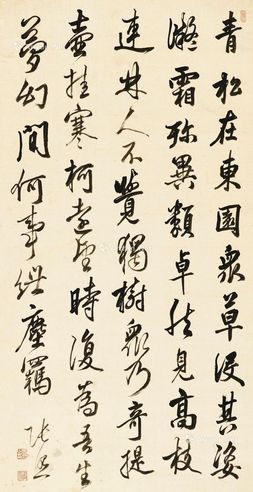 青松在東園眾草沒其姿
凝霜殄異類卓然見高枝
連林人不覺獨樹眾乃奇提
壺挂寒柯遠望時復為吾生
夢幻間何事紲塵羈
張照